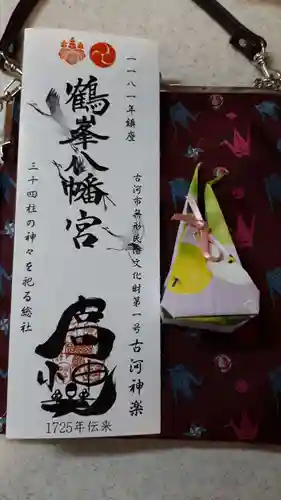 一一八一年鎮座
鶴峯八幡宮
三十四柱の神々を祀る総社
古河市無形民俗文化財第一号 古河神楽
1725年伝来